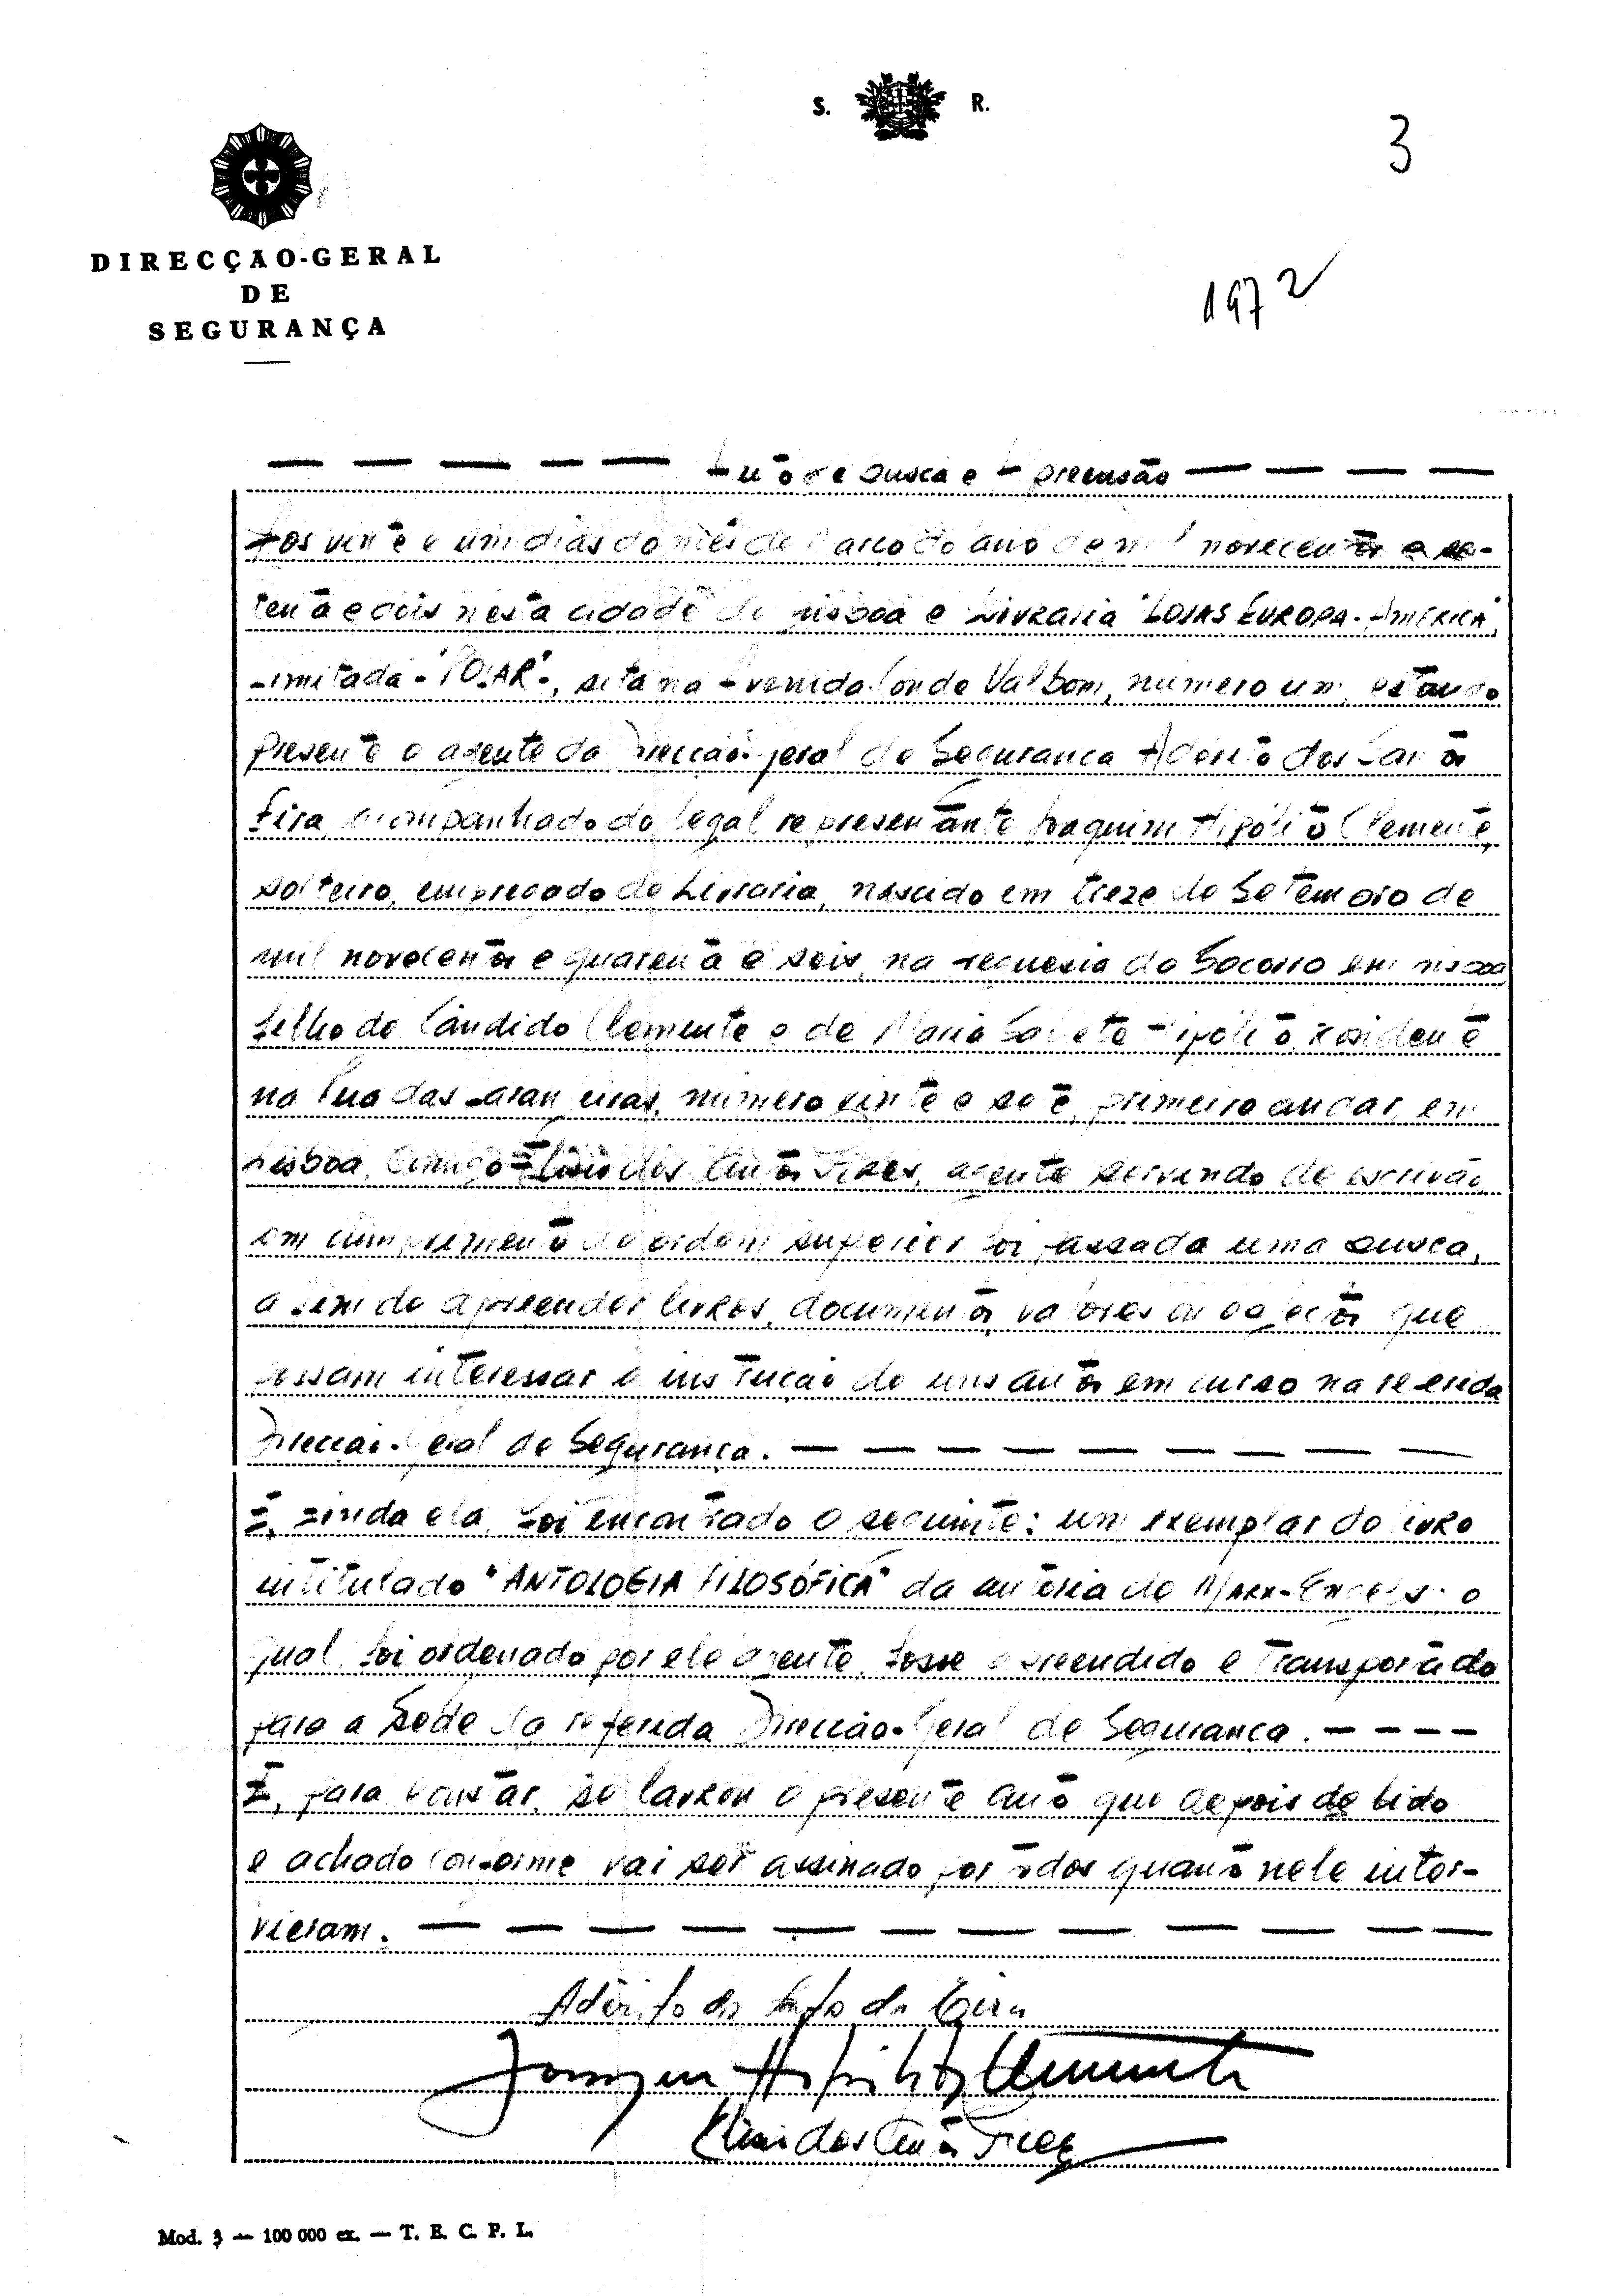 S. R.
3
DIRECÇÃO-GERAL
DE
SEGURANÇA
1972
— — — — — Auto de Busca e Apreensão — — — —
Aos vinte e um dias do mês de Março do ano de mil novecentos e se-
tenta e dois nesta cidade de Lisboa e Livraria "LOJAS EUROPA-AMÉRICA",
Limitada - "POLAR"-, sita na Avenida Conde Valbom, número um, estando
presente o agente da Direcção-Geral de Segurança Adérito dos Santos
acompanhado do legal representante Joaquim Hipólito Clemente,
solteiro, empregado de Livraria, nascido em treze de Setembro de
mil novecentos e quarenta e seis, na freguesia do Socorro em Lisboa
filho de Cândido Clemente e de Maria Hipólito, residente
na Rua das Laranjeiras, número vinte e sete, primeiro andar, em
Lisboa, comigo dos agente servindo de escrivão,
em cumprimento de ordem superior foi passada uma busca,
a fim de apreender livros, documentos, valores ou objectos que
possam interessar à instrução de uns autos em curso na referida
Direcção-Geral de Segurança. — — — — — — — —
E, finda ela, foi encontrado o seguinte: um exemplar do livro
intitulado "ANTOLOGIA FILOSÓFICA" da autoria de Marx-Engels; o
qual foi ordenado por ele agente, fosse apreendido e transportado
para a Sede da referida Direcção-Geral de Segurança. — — — —
E, para constar, se lavrou o presente auto que depois de lido
e achado conforme vai ser assinado por todos quanto nele inter-
vieram. — — — — — — — — — — — —
Adérito dos Santos da
Joaquim Hipólito Clemente
dos
Mod. 3 — 100 000 ex. — T. E. C. P. L.